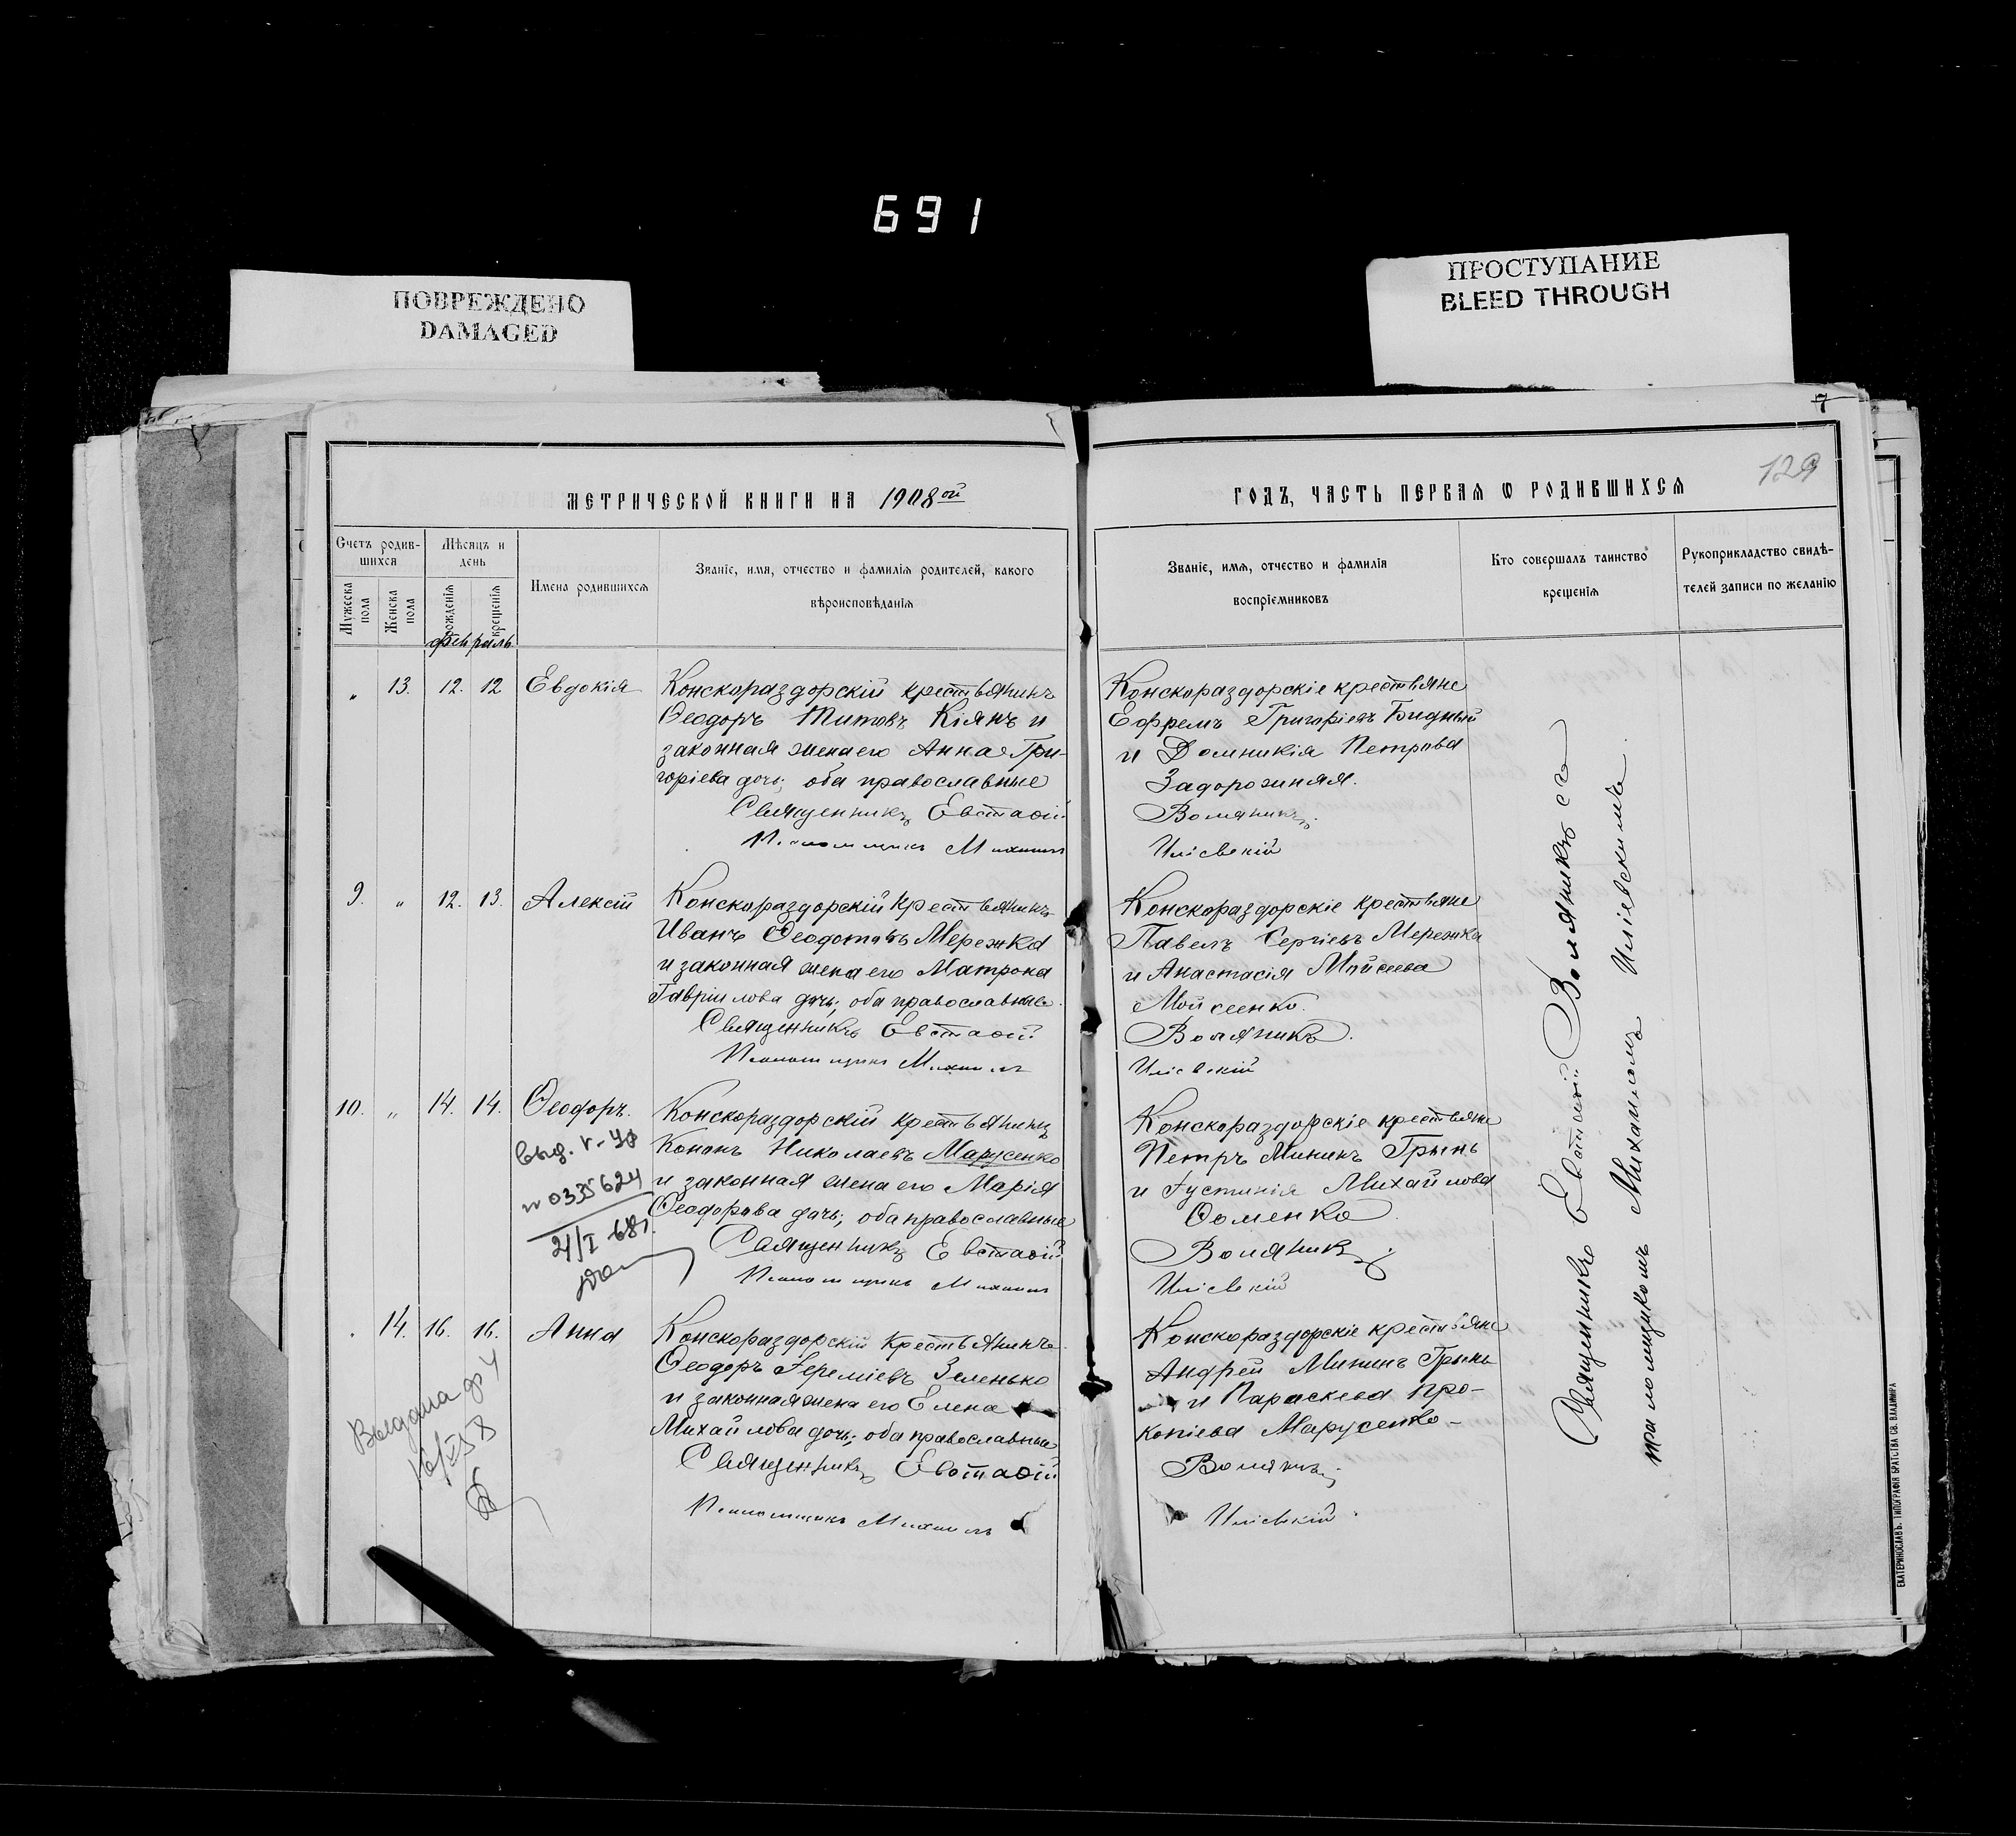 691
ПОВРЕЖДЕНО
DAMAGED
ПРОСТУПАНИЕ
BLEED THROUGH
7
129
МЕТРИЧЕСКОЙ КНИГИ НА 1908ой
ГОДЪ, ЧАСТЬ ПЕРВАЯ Ѡ РОДИВШИХСЯ
Счетъ родив-
шихся
Мужеска
пола
Женска
пола
Мѣсяцъ и
день
рожденія
крещенія
Имена родившихся
Званіе, имя, отчество и фамилія родителей, какого
вѣроисповѣданія
Званіе, имя, отчество и фамилія
воспріемниковъ
Кто совершалъ таинство
крещенія
Рукоприкладство свидѣ-
телей записи по желанію
февраль
„ 13. 12. 12 Евдокія
Конскораздорскій крестьянинъ
Ѳеодоръ Титовъ Кіянъ и
законная жена его Анна Гри-
горіева дочь; оба православные
Священникъ Евстаѳій
Псаломщикъ Михаилъ
Конскораздорскіе крестьяне
Ефремъ Григоріевъ Бидный
и Домникія Петрова
Задорожняя.
Воляникъ
Иліевскій
9. „ 12. 13. Алексій
Конскораздорскій крестьянинъ
Иванъ Ѳеодотовъ Мережка
и законная жена его Матрона
Гавріилова дочь; оба православные.
Священникъ Евстаѳій
Псаломщикъ Михаилъ
Конскораздорскіе крестьяне
Павелъ Сергіевъ Мережка
и Анастасія Мойсеева
Мойсеенко.
Воляникъ.
Иліевскій
10. „ 14. 14. Ѳеодоръ.
выд.
№ 0335624
21/I-68г.
Конскораздорскій крестьянинъ
Кононъ Николаевъ Марусенко
и законная жена его Марія
Ѳеодорова дочь; оба православные
Священникъ Евстаѳій
Псаломщикъ Михаилъ
Конскораздорскіе крестьяне
Петръ Мининъ Грынь
и Іустинія Михайлова
Ѳоменко.
Воляникъ
Иліевскій
14. 16. 16. Анна
Выдана
Конскораздорскій крестьянинъ
Ѳеодоръ Іереміевъ Зеленько
и законная жена его Елена
Михайлова дочь; оба православные
Священникъ Евстаѳій
Псаломщикъ Михаилъ
Конскораздорскіе крестьяне
Андрей Мининъ Грынь
и Параскева Про-
копіева Марусенко
Воляникъ
Иліевскій.
Священникъ Евстаѳій Воляникъ съ
псаломщикомъ Михаиломъ Иліевскимъ.
ЕКАТЕРИНОСЛАВЪ. ТИПОГРАФІЯ БРАТСТВА СВ. ВЛАДИМІРА